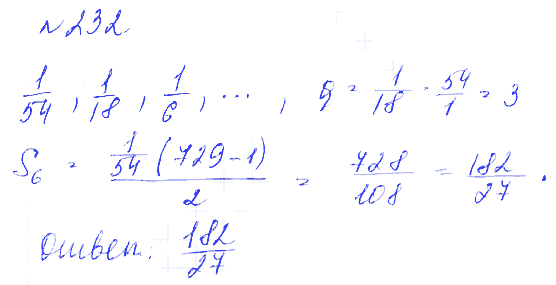 №232
1/54, 1/18, 1/6, ..., q = 1/18 · 54/1 = 3
S₆ = 1/54 (729-1) / 2 = 728/108 = 182/27.
Ответ: 182/27